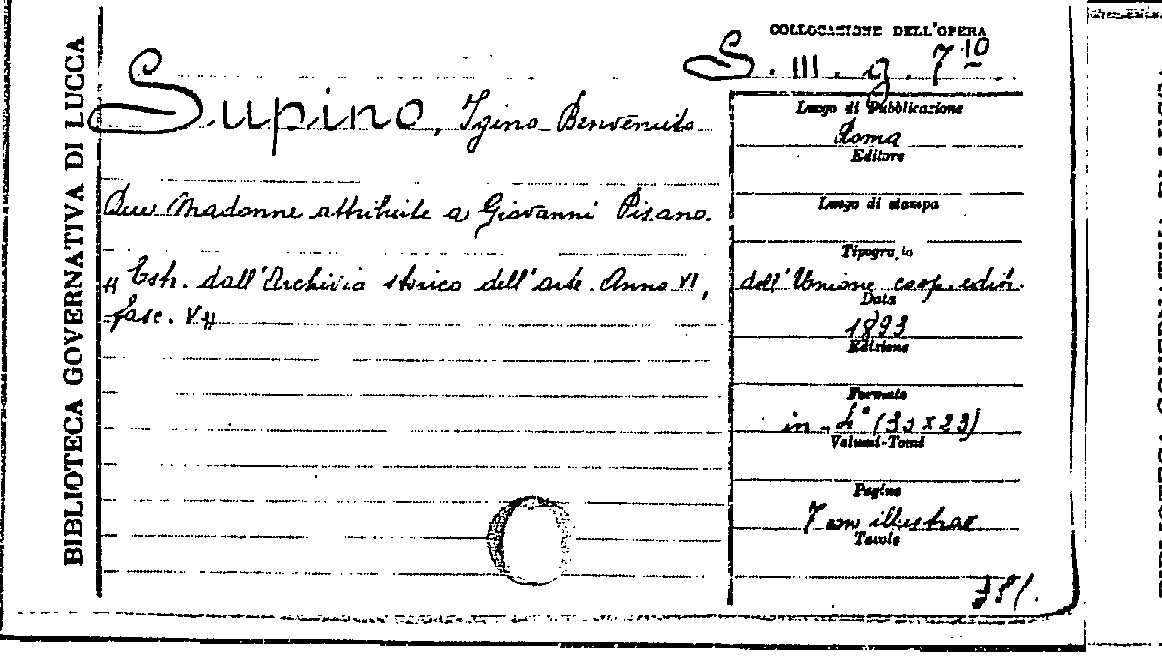 BIBLIOTECA GOVERNATIVA DI LUCCA
COLLOCAZIONE DELL'OPERA
S. III. g. 7 10
Supino, Igino Benvenuto
Due Madonne attribuite a Giovanni Pisano.
"Estr. dall'Archivio storico dell'arte. Anno VI,
fasc. V"
Luogo di Pubblicazione
Roma
Editore
Luogo di stampa
Tipografo
dell'Unione coop. editr.
Data
1893
Edizione
Formato
in-4° (33x23)
Volumi-Tomi
Pagine
7 con illustraz
Tavole